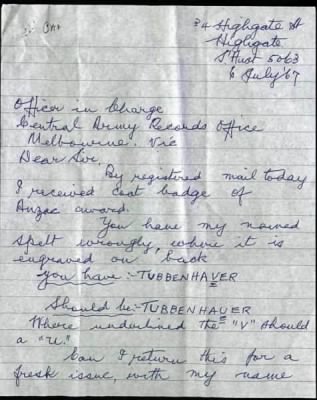 34 Highgate St
Highgate
S'Aust 5063
6 July '67
Officer in Charge
Central Army Records Office
Melbourne. Vic
Dear Sir,
By registered mail today
I received coat badge of
Anzac award.
You have my named
spelt wrongly, where it is
engraved on back
you have:- TUBBENHAVER
Should be:- TUBBENHAUER
Where underlined the "V" should
a "U."
Can I return this for a
fresh issue, with my name